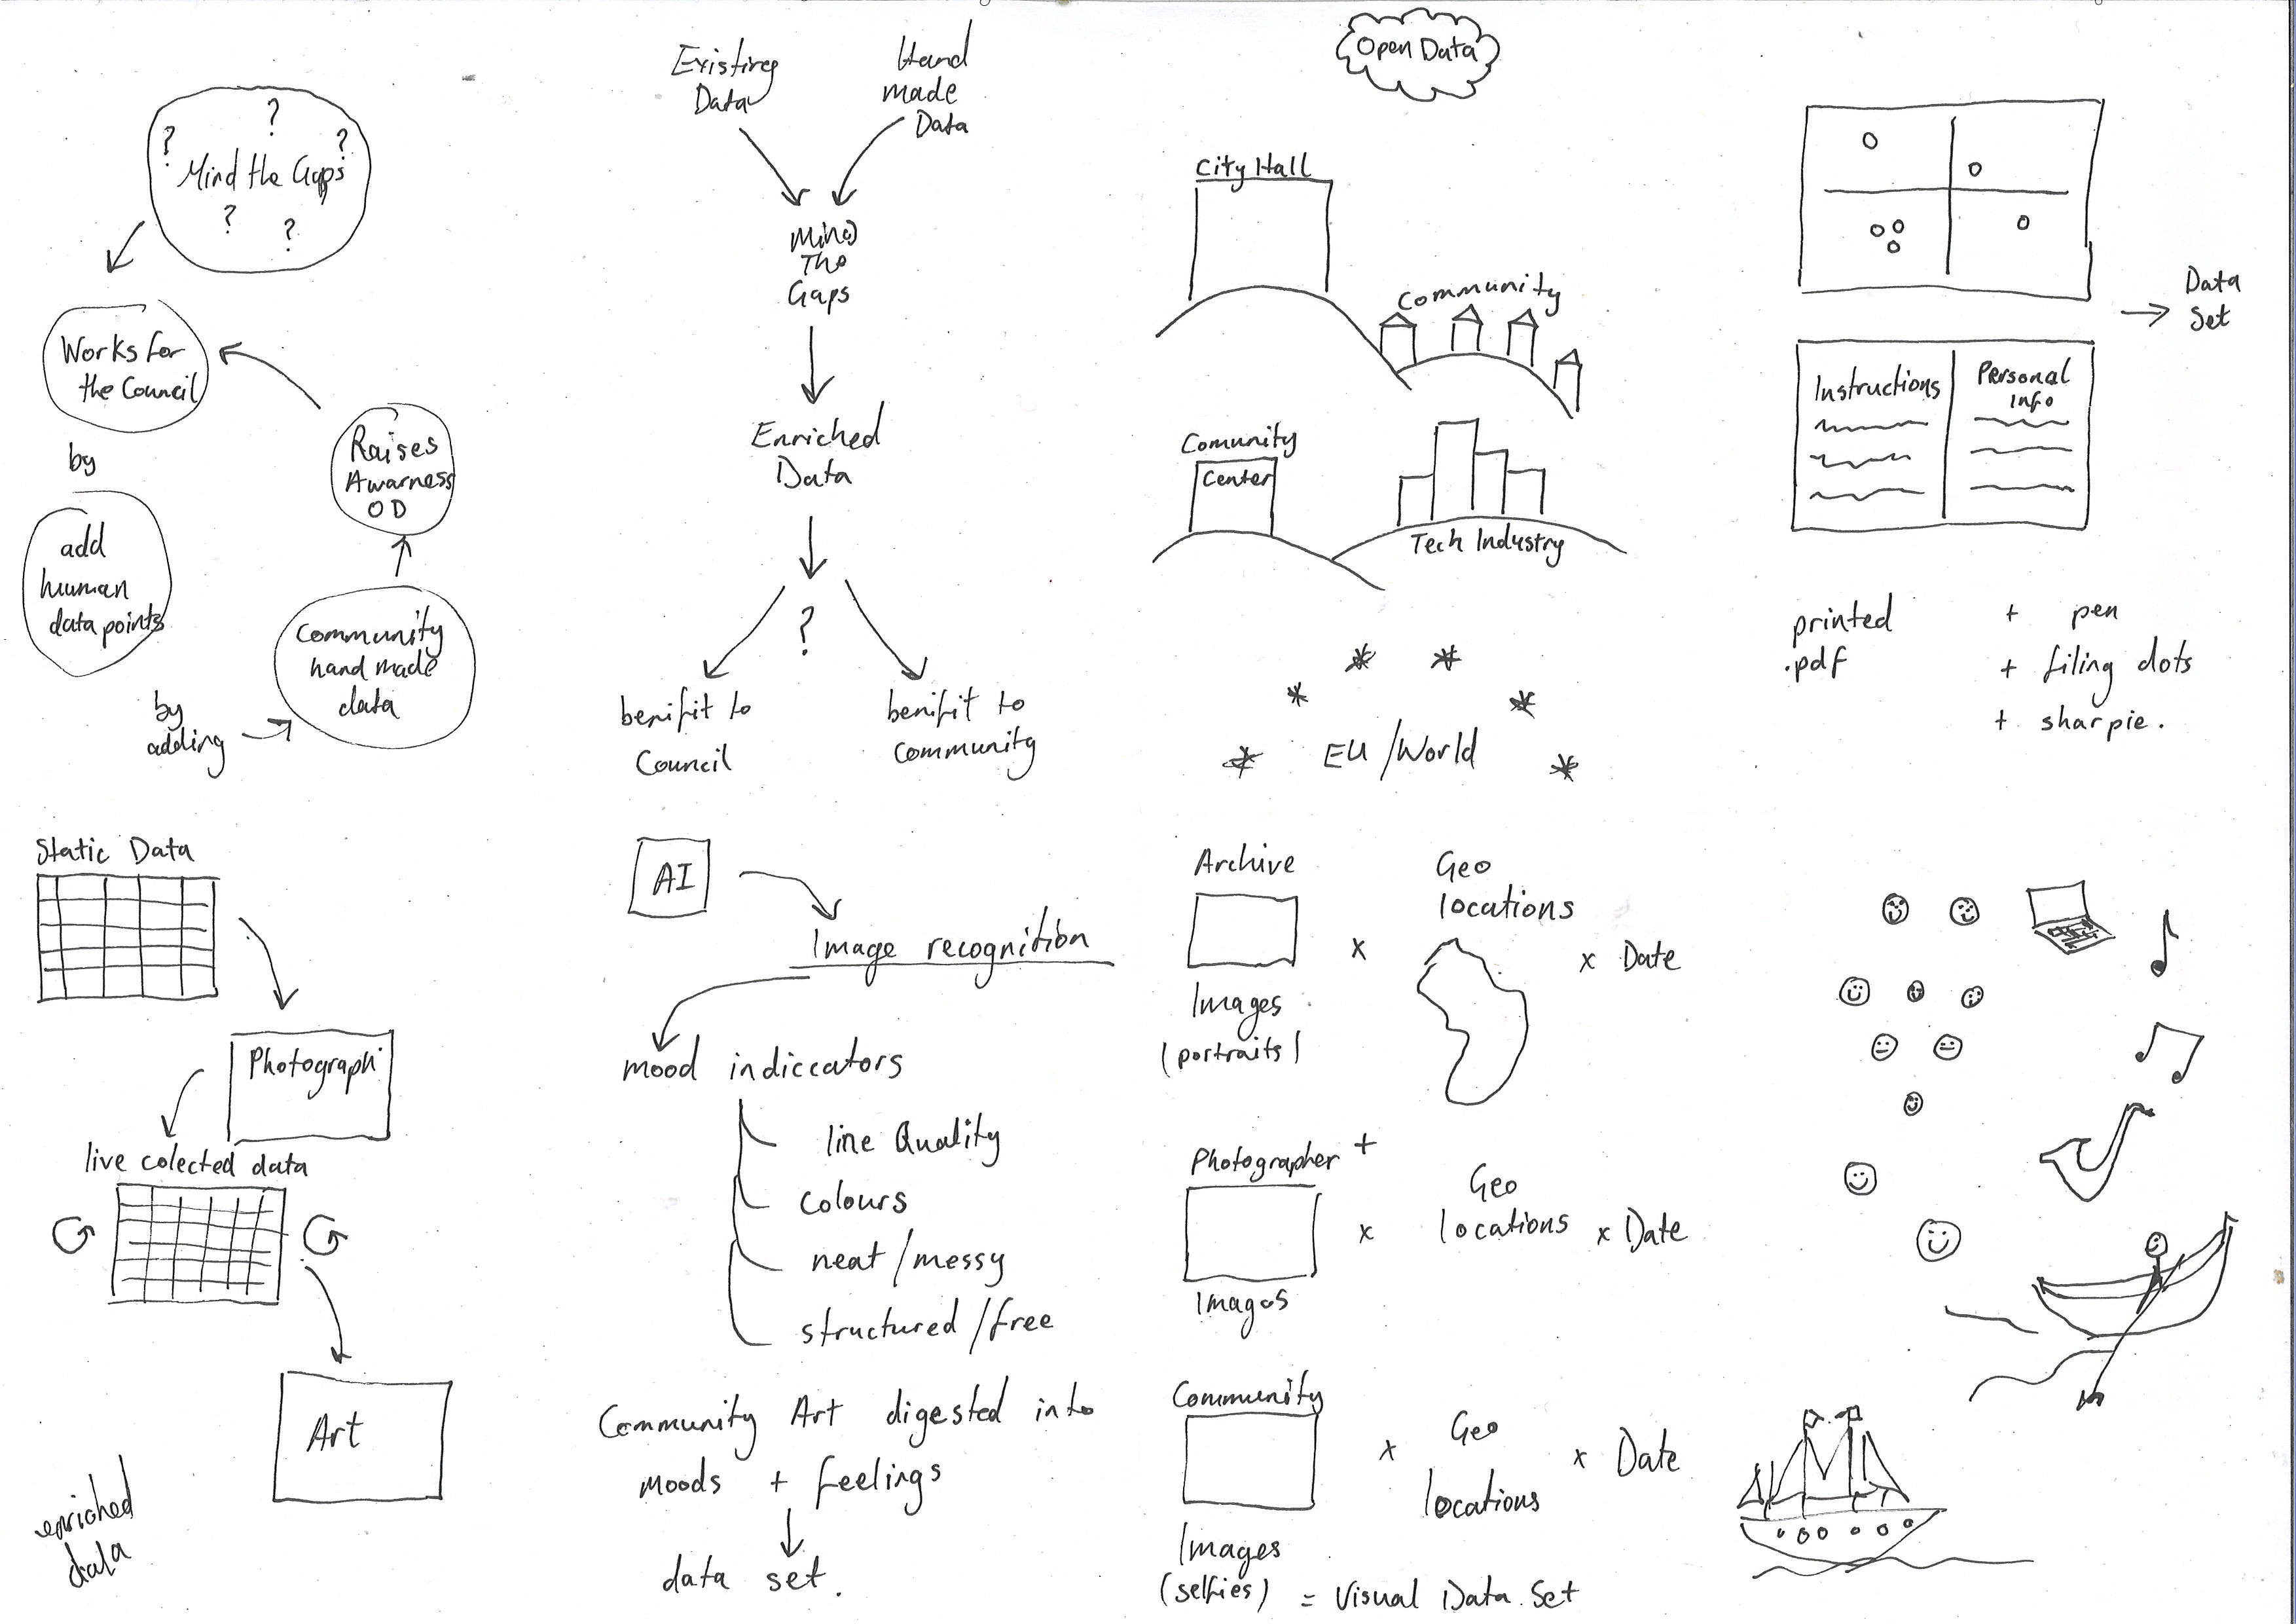 Mind the Gaps
? ? ? ? ?
Works for
the Council
by
add
human
data points
by
adding
Community
hand made
data
Raises
Awarness
OD
Existing
Data
Hand
made
Data
Mind
The
Gaps
Enriched
Data
?
benifit to
Council
benifit to
community
Open Data
City Hall
Community
Comunity
Center
Tech Industry
EU/World
Data
Set
Instructions
Personal
Info
printed
.pdf
+ pen
+ filing dots
+ sharpie.
Static Data
Photograph
live colected data
Art
enriched
data
AI
Image recognition
mood indiccators
line Quality
colours
neat/messy
structured/free
Community Art digested into
moods + feelings
data set.
Archive
Images
(portraits)
x
Geo
locations
x Date
Photographer +
Images
x
Geo
locations
x Date
Community
Images
(selfies)
x
Geo
locations
x Date
= Visual Data Set